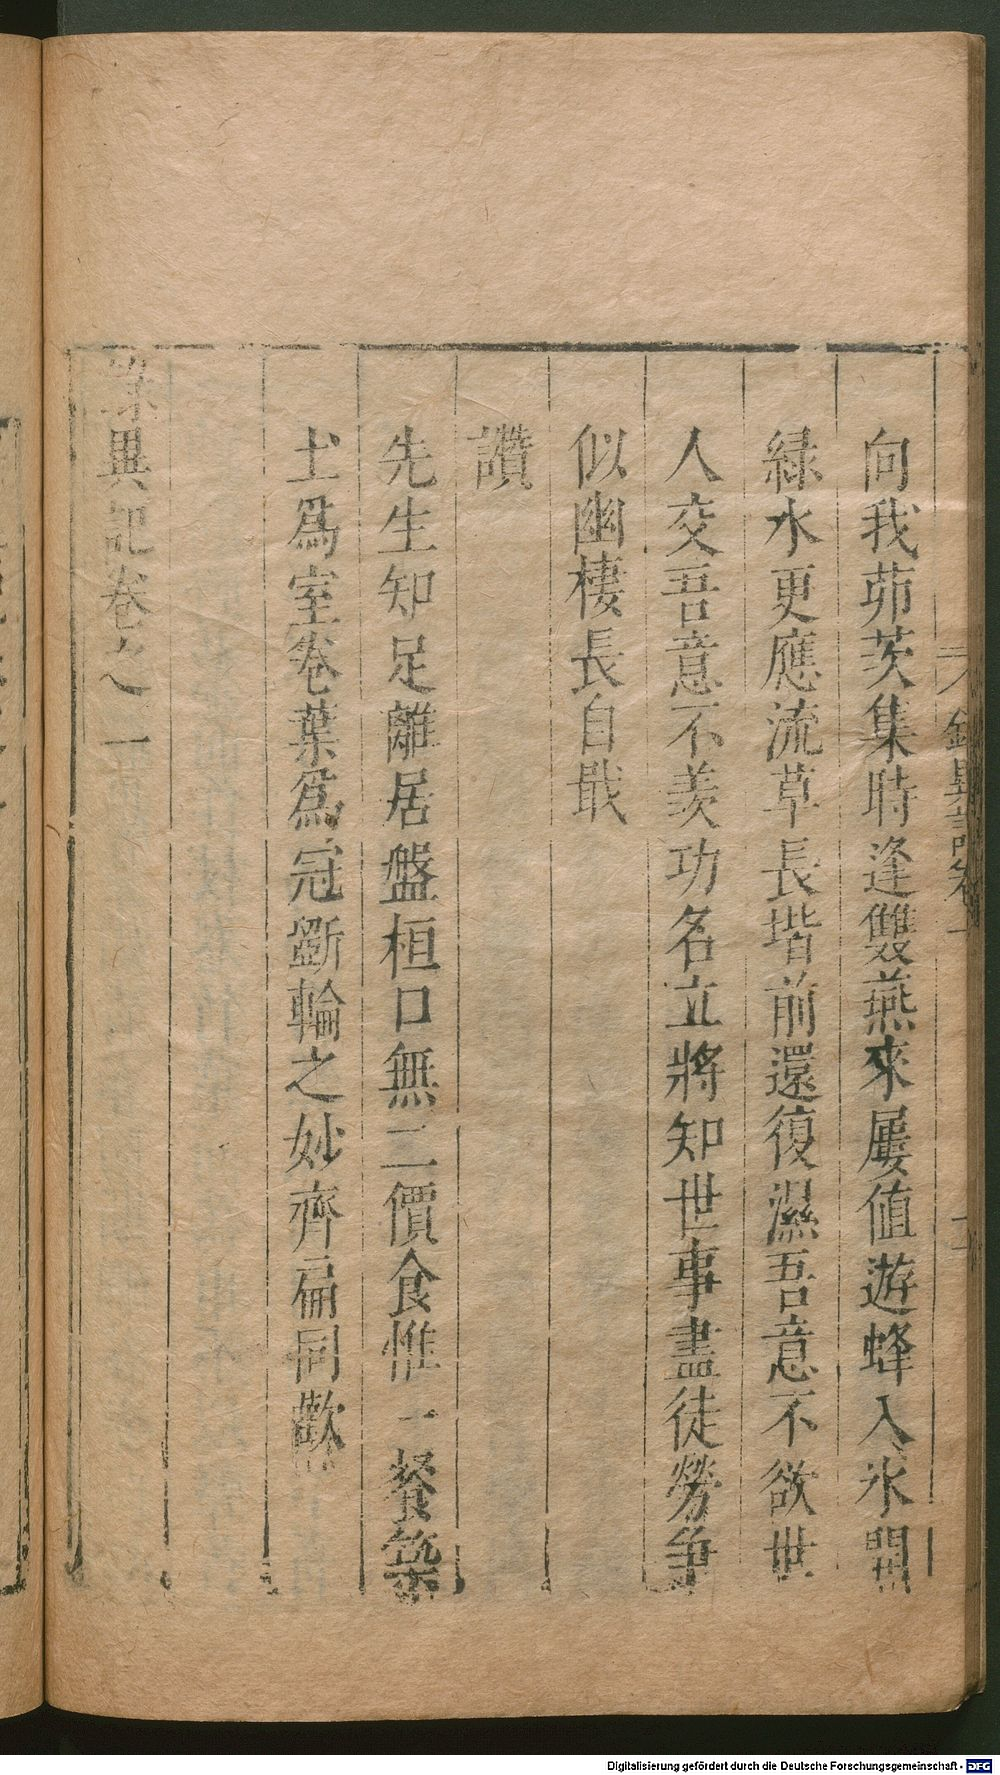 向我茆茨集時逢雙燕來屢值遊蜂入氷開
緑水更應流草長堦前還復濕吾意不欲世
人交吾意不羨功名立將知世事盡徒勞爭
似幽棲長自戢
讚
先生知足離居盤桓口無二價食惟一餐築
土爲室卷葉爲冠斵輪之妙齊扁同歡
異記卷之一
Digitalisierung gefördert durch die Deutsche Forschungsgemeinschaft - DFG